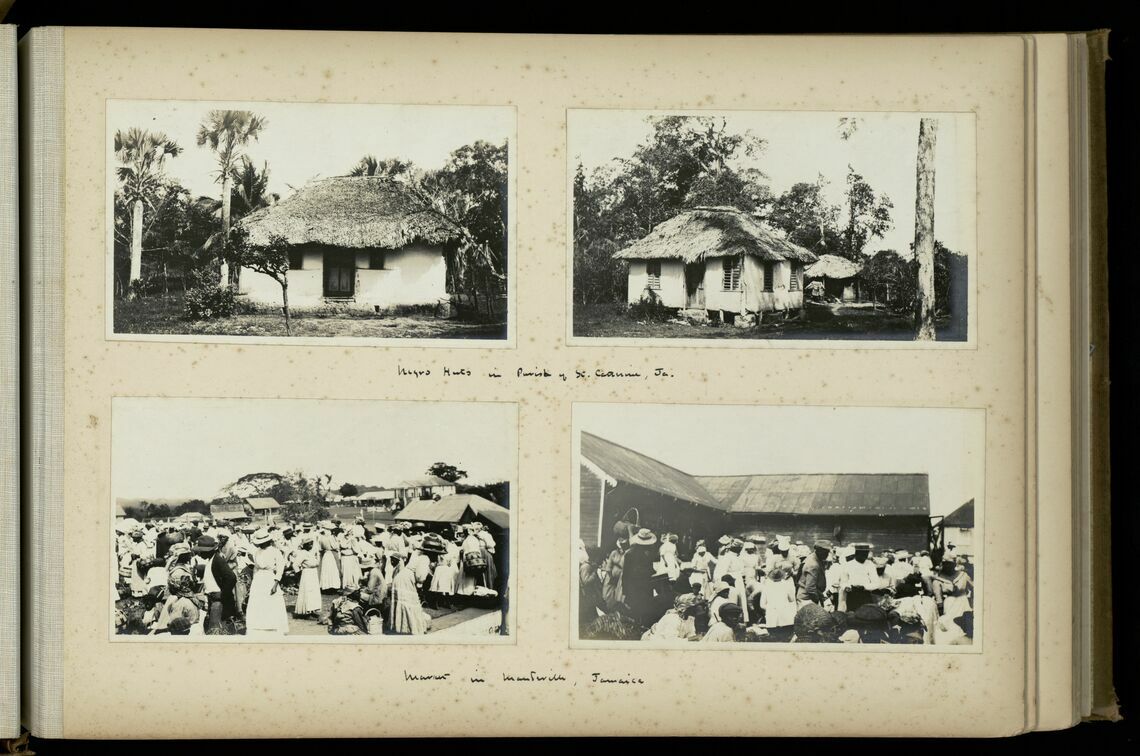 Negro Huts in Parish of St. Catherine, Ja.
Market in Mandeville, Jamaica